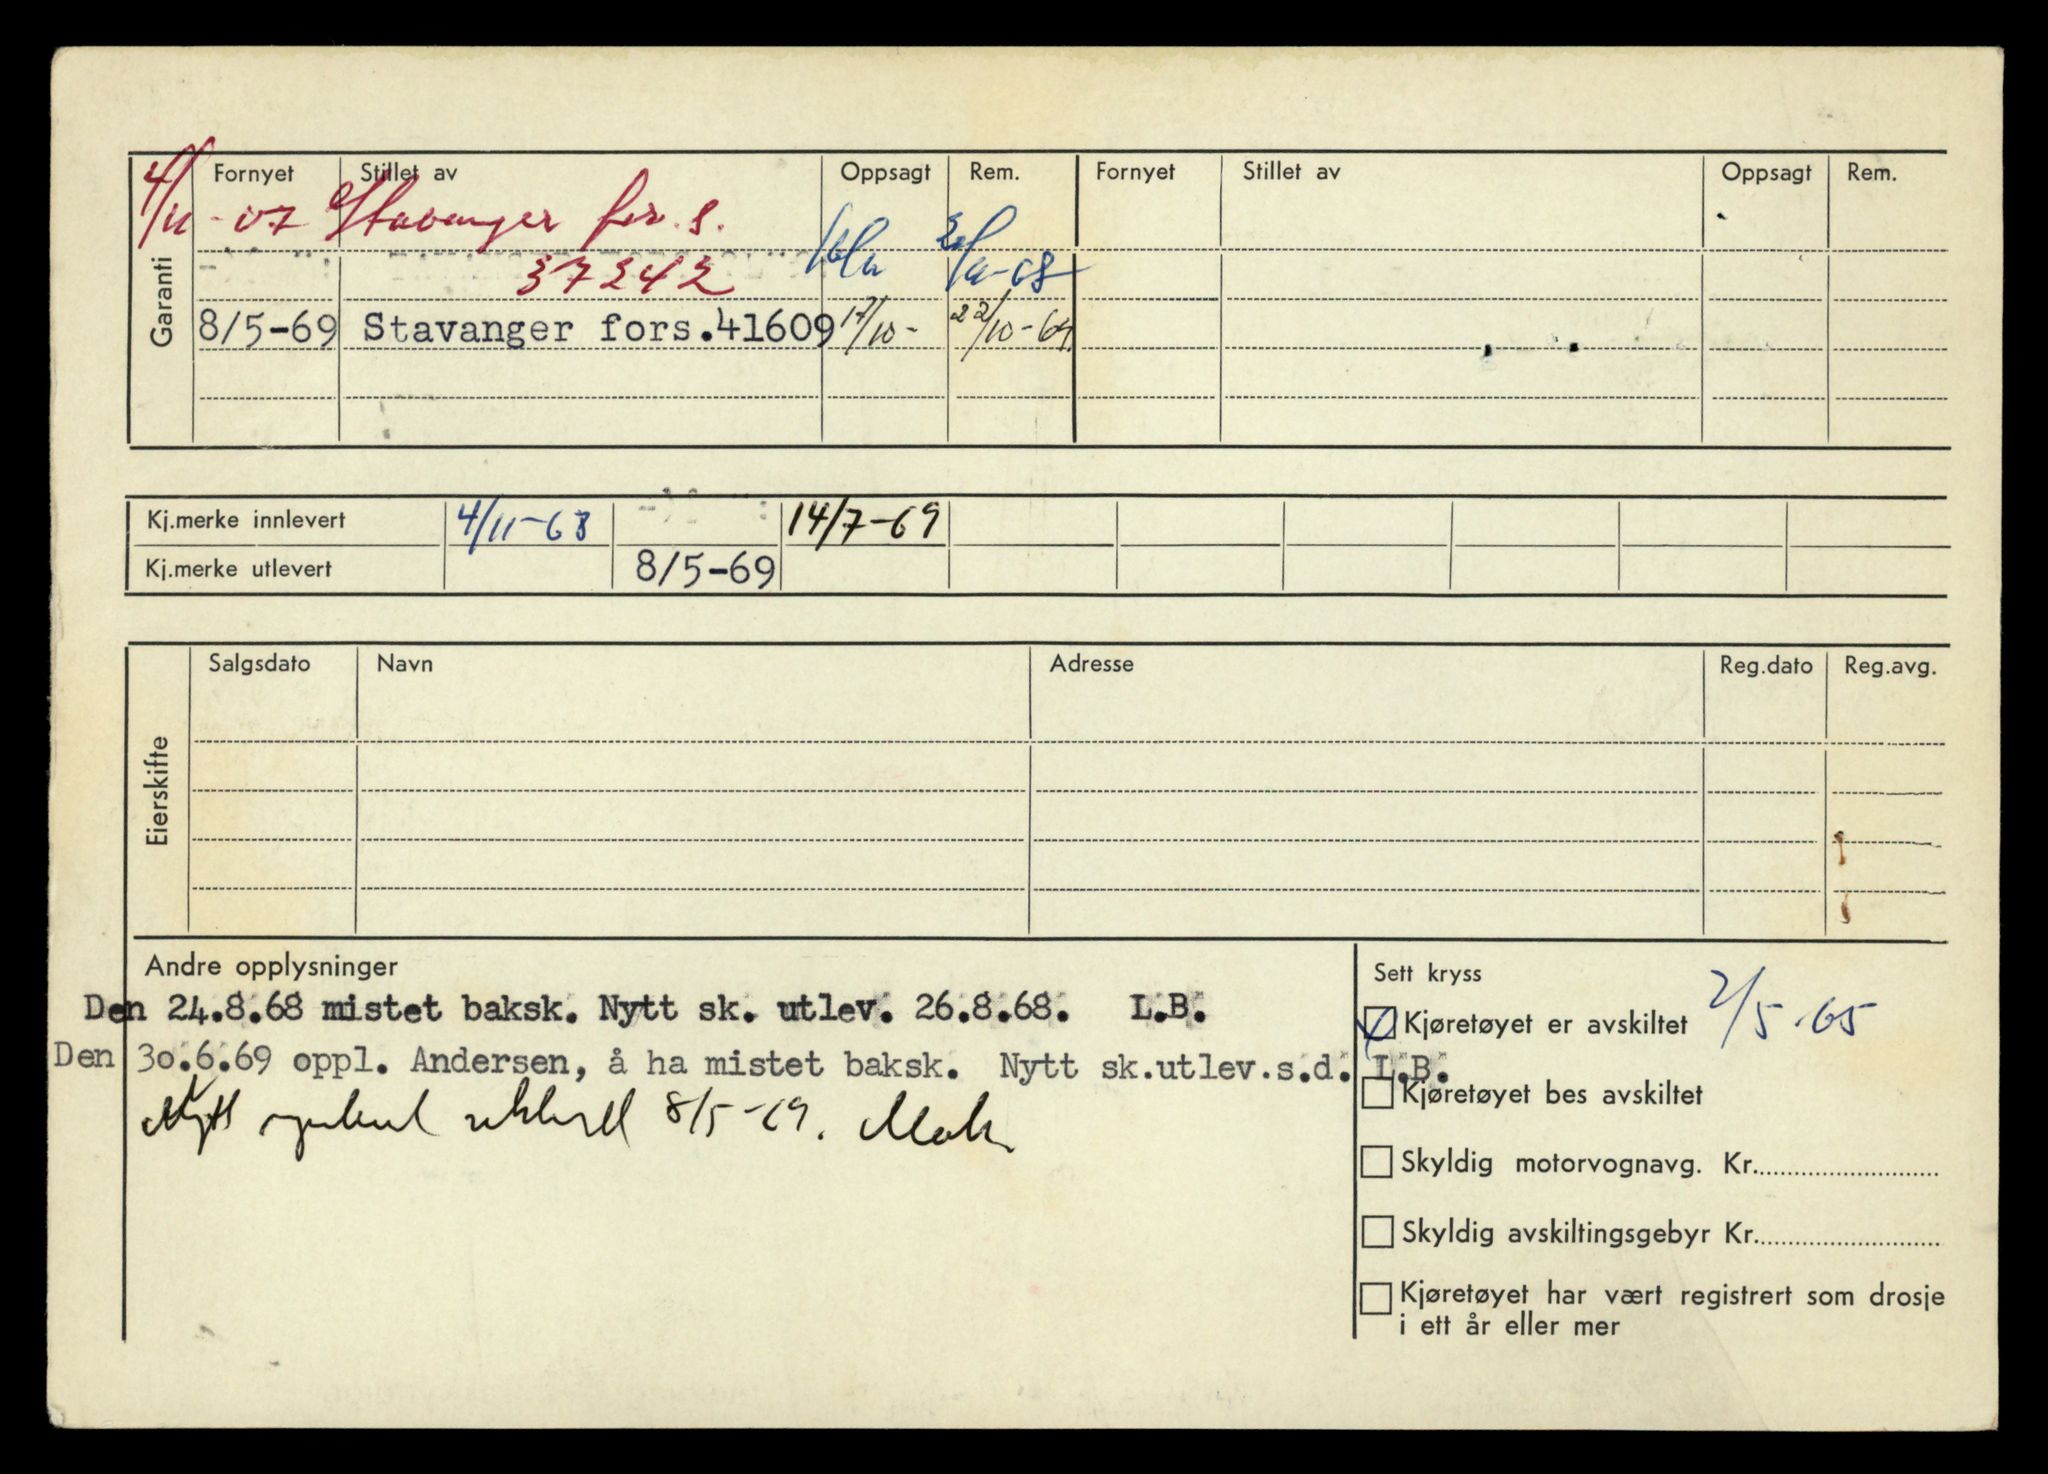 Fornyet Stillet av Oppsagt Rem. Fornyet Stillet av Oppsagt Rem.
4/11-67 Stavanger for.s.
37242
Garanti
8/5-69 Stavanger fors.41609 17/10- 22/10-69
Kj.merke innlevert 4/11-68 14/7-69
Kj.merke utlevert 8/5-69
Salgsdato Navn Adresse Reg.dato Reg.avg.
Eierskifte
Andre opplysninger
Den 24.8.68 mistet baksk. Nytt sk. utlev. 26.8.68. L.B.
Den 30.6.69 oppl. Andersen, å ha mistet baksk. Nytt sk.utlev.s.d. L.B.
Nytt 8/5-69.
Sett kryss
Kjøretøyet er avskiltet 2/5-65
Kjøretøyet bes avskiltet
Skyldig motorvognavg. Kr.
Skyldig avskiltingsgebyr Kr.
Kjøretøyet har vært registrert som drosje
i ett år eller mer